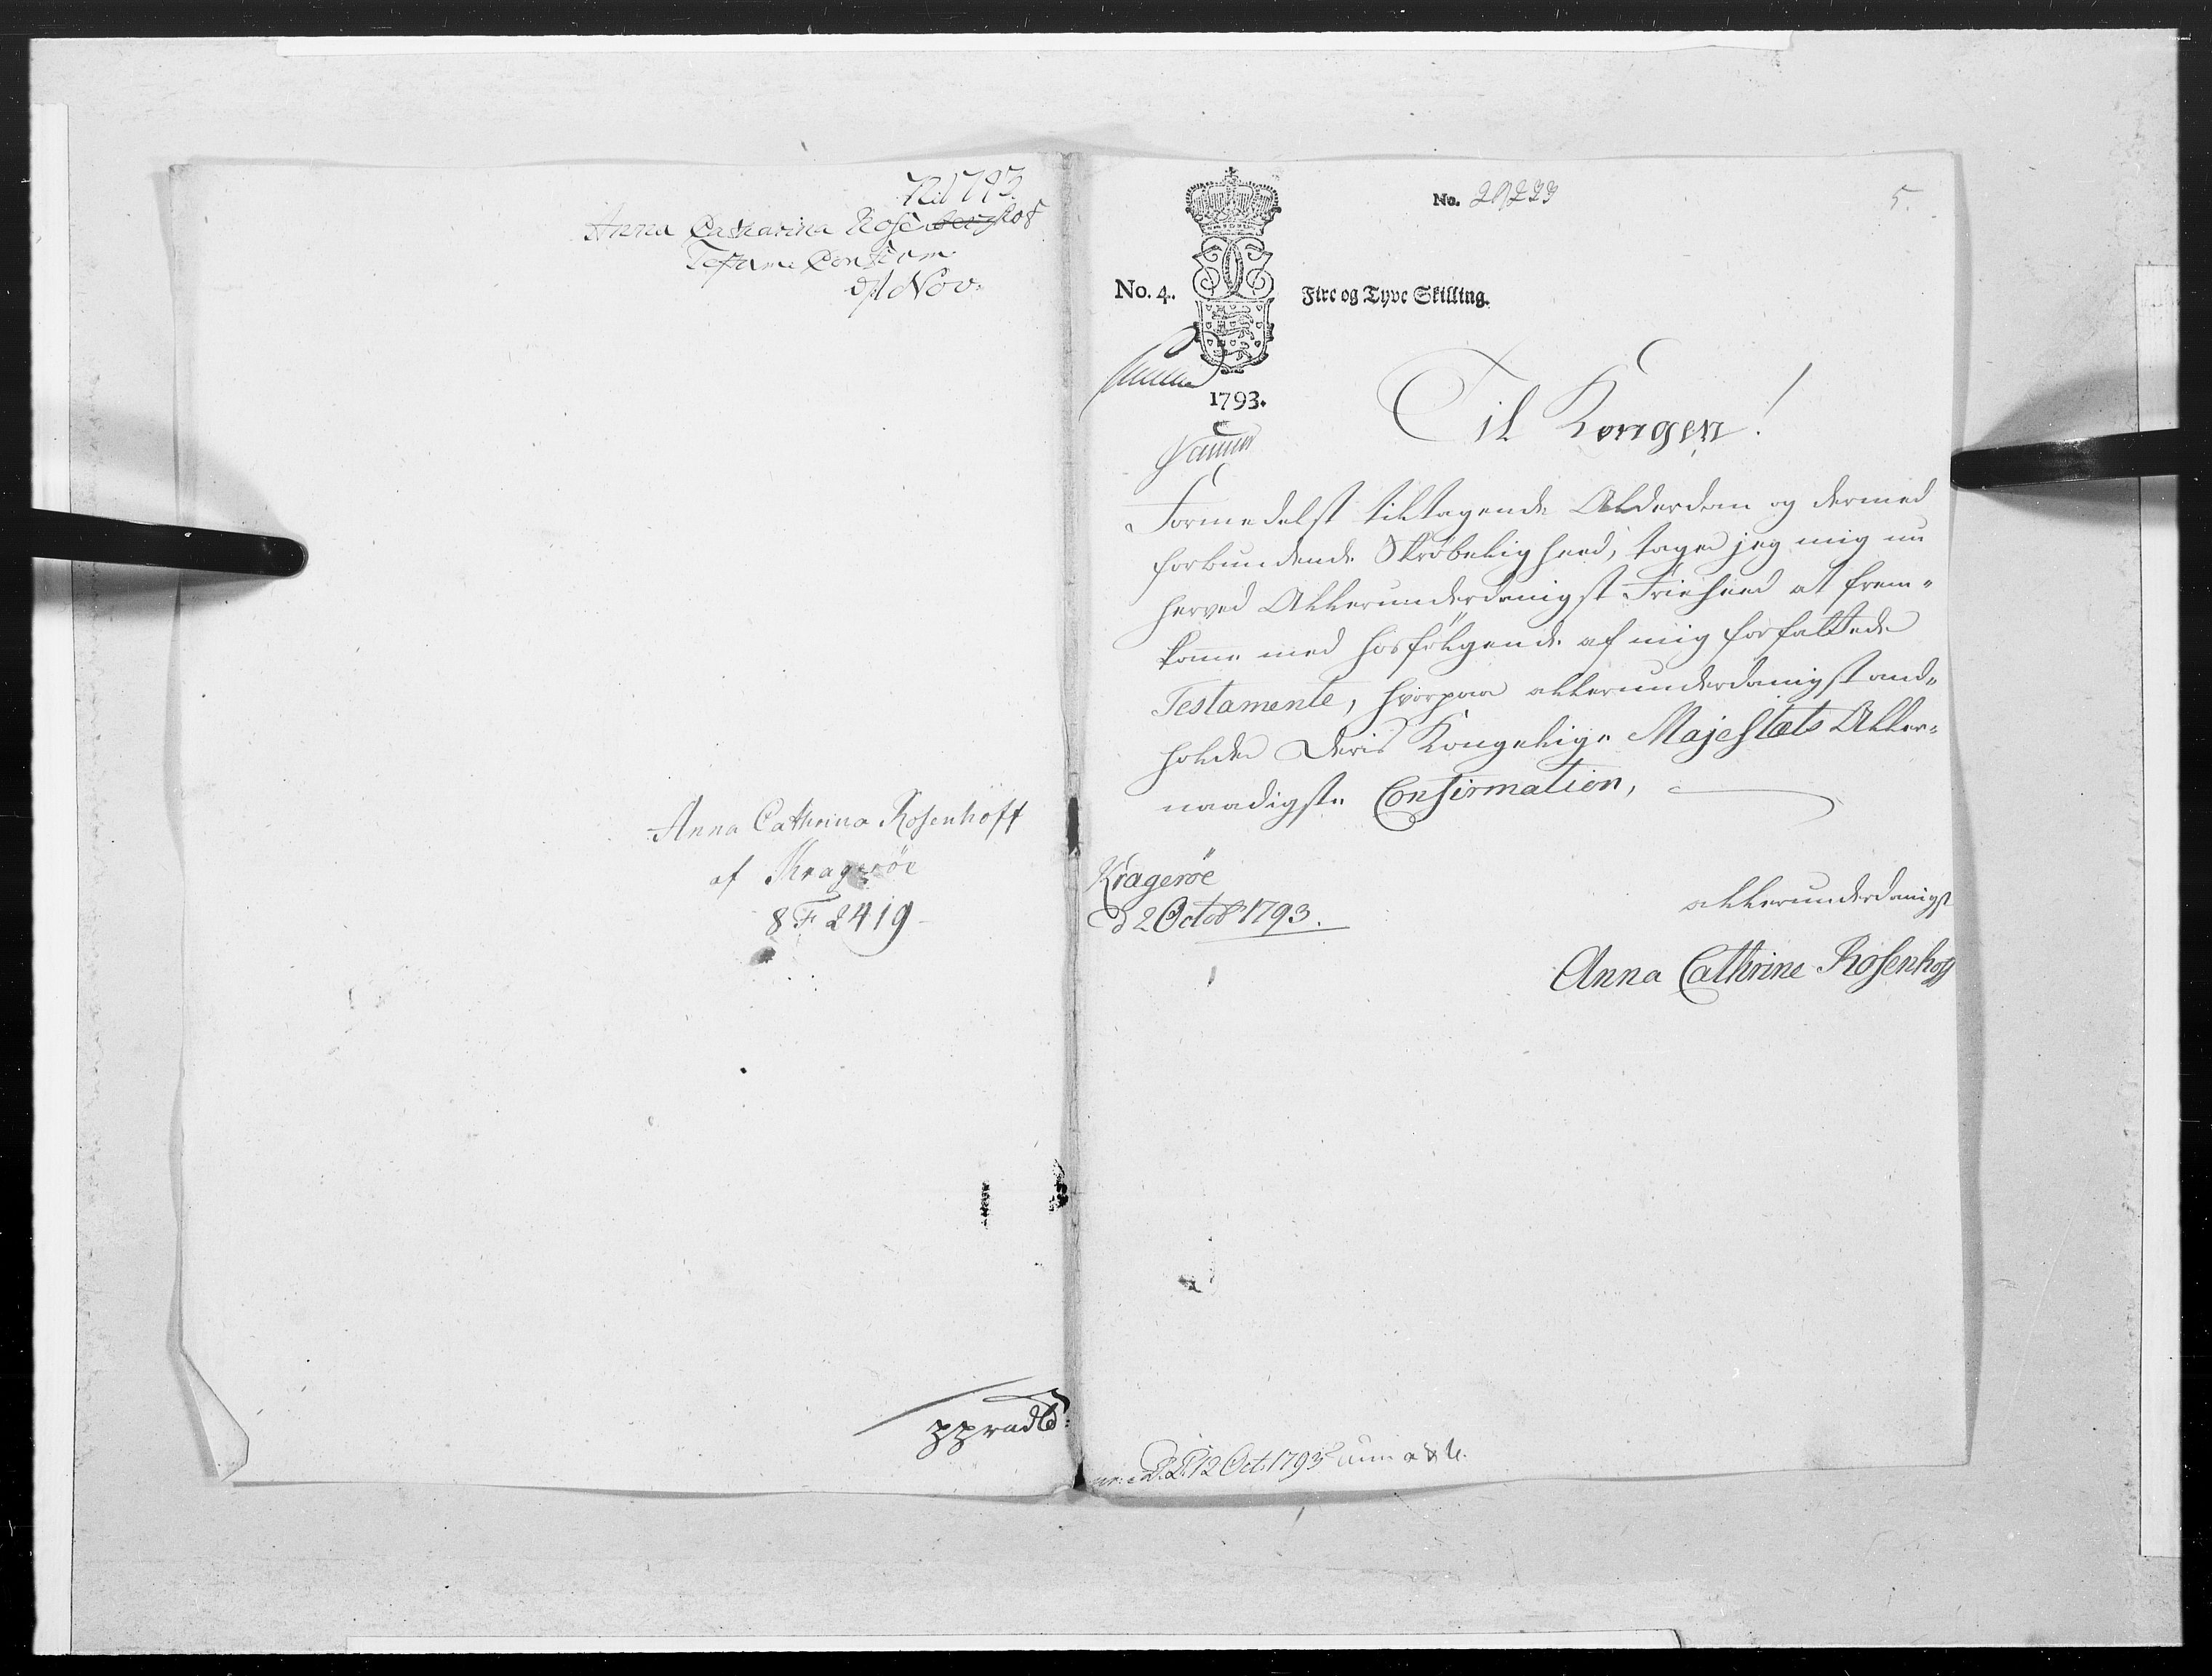 Anna Catharina Rosenberghof
Testam: Confirm
d/1 Nov:
Anna Cathrina Rosenhoff
af Kragerøe
8 F 2419
No. 20233
5.
No. 4.
Fire og Tyve Skilling.
1793.
Til Kongen!
Formedelst tiltagende Alderdom og dermed
forbundende Skrøbelighed, tager jeg mig nu
herved Allerunderdanigst Friehed at frem-
komme med hosfølgende af mig forfattede
Testamente, hvorpaa allerunderdanigst an-
holder Deris Kongelige Majestæts Aller-
naadigste Confirmation,
Kragerøe
d 2 Octob 1793.
allerunderdanigst
Anna Cathrine Rosenhoff
12 Oct. 1793